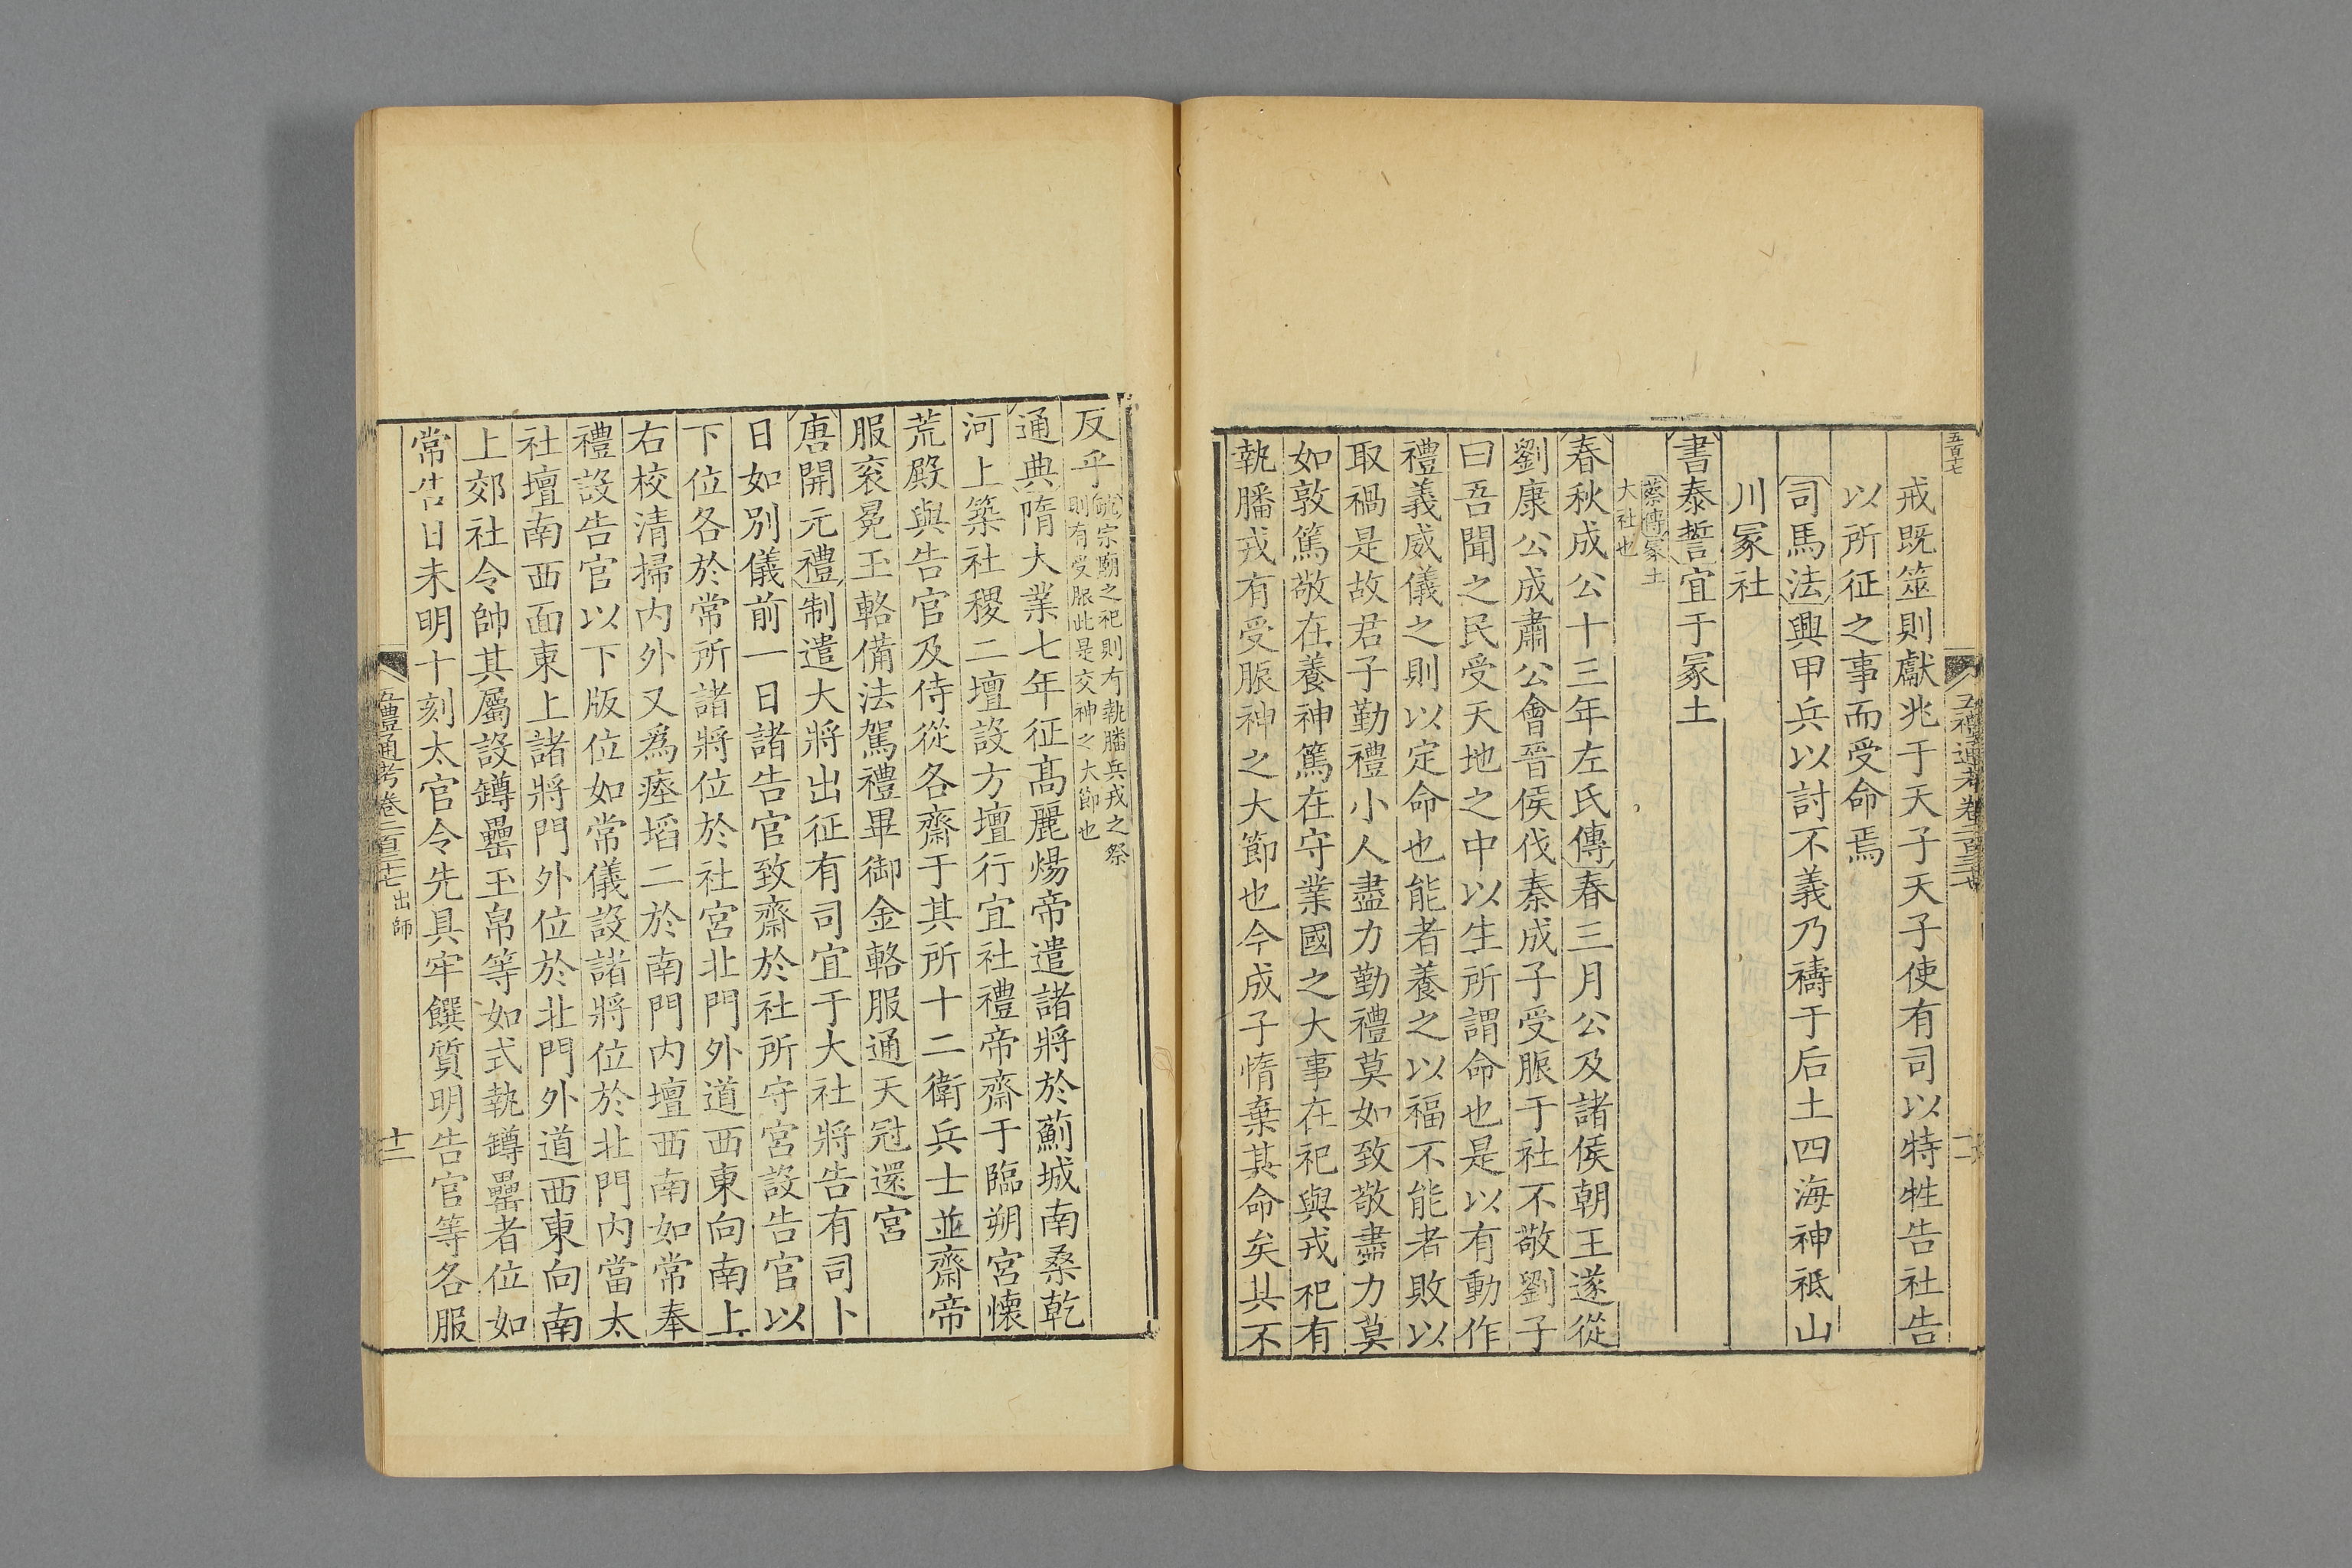 五百十七
五禮通考卷二百三十七
十一
戒既筮則獻兆于天子天子使有司以特牲告社告
以所征之事而受命焉
司馬法興甲兵以討不義乃禱于后土四海神祇山
川冢社
書泰誓宜于冢土
蔡傳冢土
大社也
春秋成公十三年左氏傳春三月公及諸侯朝王遂從
劉康公成肅公會晉侯伐秦成子受脤于社不敬劉子
曰吾聞之民受天地之中以生所謂命也是以有動作
禮義威儀之則以定命也能者養之以福不能者敗以
取禍是故君子勤禮小人盡力勤禮莫如致敬盡力莫
如敦篤敬在養神篤在守業國之大事在祀與戎祀有
執膰戎有受脤神之大節也今成子惰棄其命矣其不
反乎
疏宗廟之祀則有執膰兵戎之祭
則有受脤此是交神之大節也
通典隋大業七年征髙麗煬帝遣諸將於薊城南桑乾
河上築社稷二壇設方壇行宜社禮帝齋于臨朔宮懷
荒殿與告官及侍從各齋于其所十二衛兵士並齋帝
服衮冕玉輅備法駕禮畢御金輅服通天冠還宮
唐開元禮制遣大將出征有司宜于大社將告有司卜
日如別儀前一日諸告官致齋於社所守宮設告官以
下位各於常所諸將位於社宮北門外道西東向南上
右校清掃内外又為瘞埳二於南門内壇西南如常奉
禮設告官以下版位如常儀設諸將位於北門内當太
社壇南西面東上諸將門外位於北門外道西東向南
上郊社令帥其屬設罇罍玉帛等如式執罇罍者位如
常告日未明十刻太官令先具牢饌質明告官等各服
五禮通考卷二百三十七
出師
十二